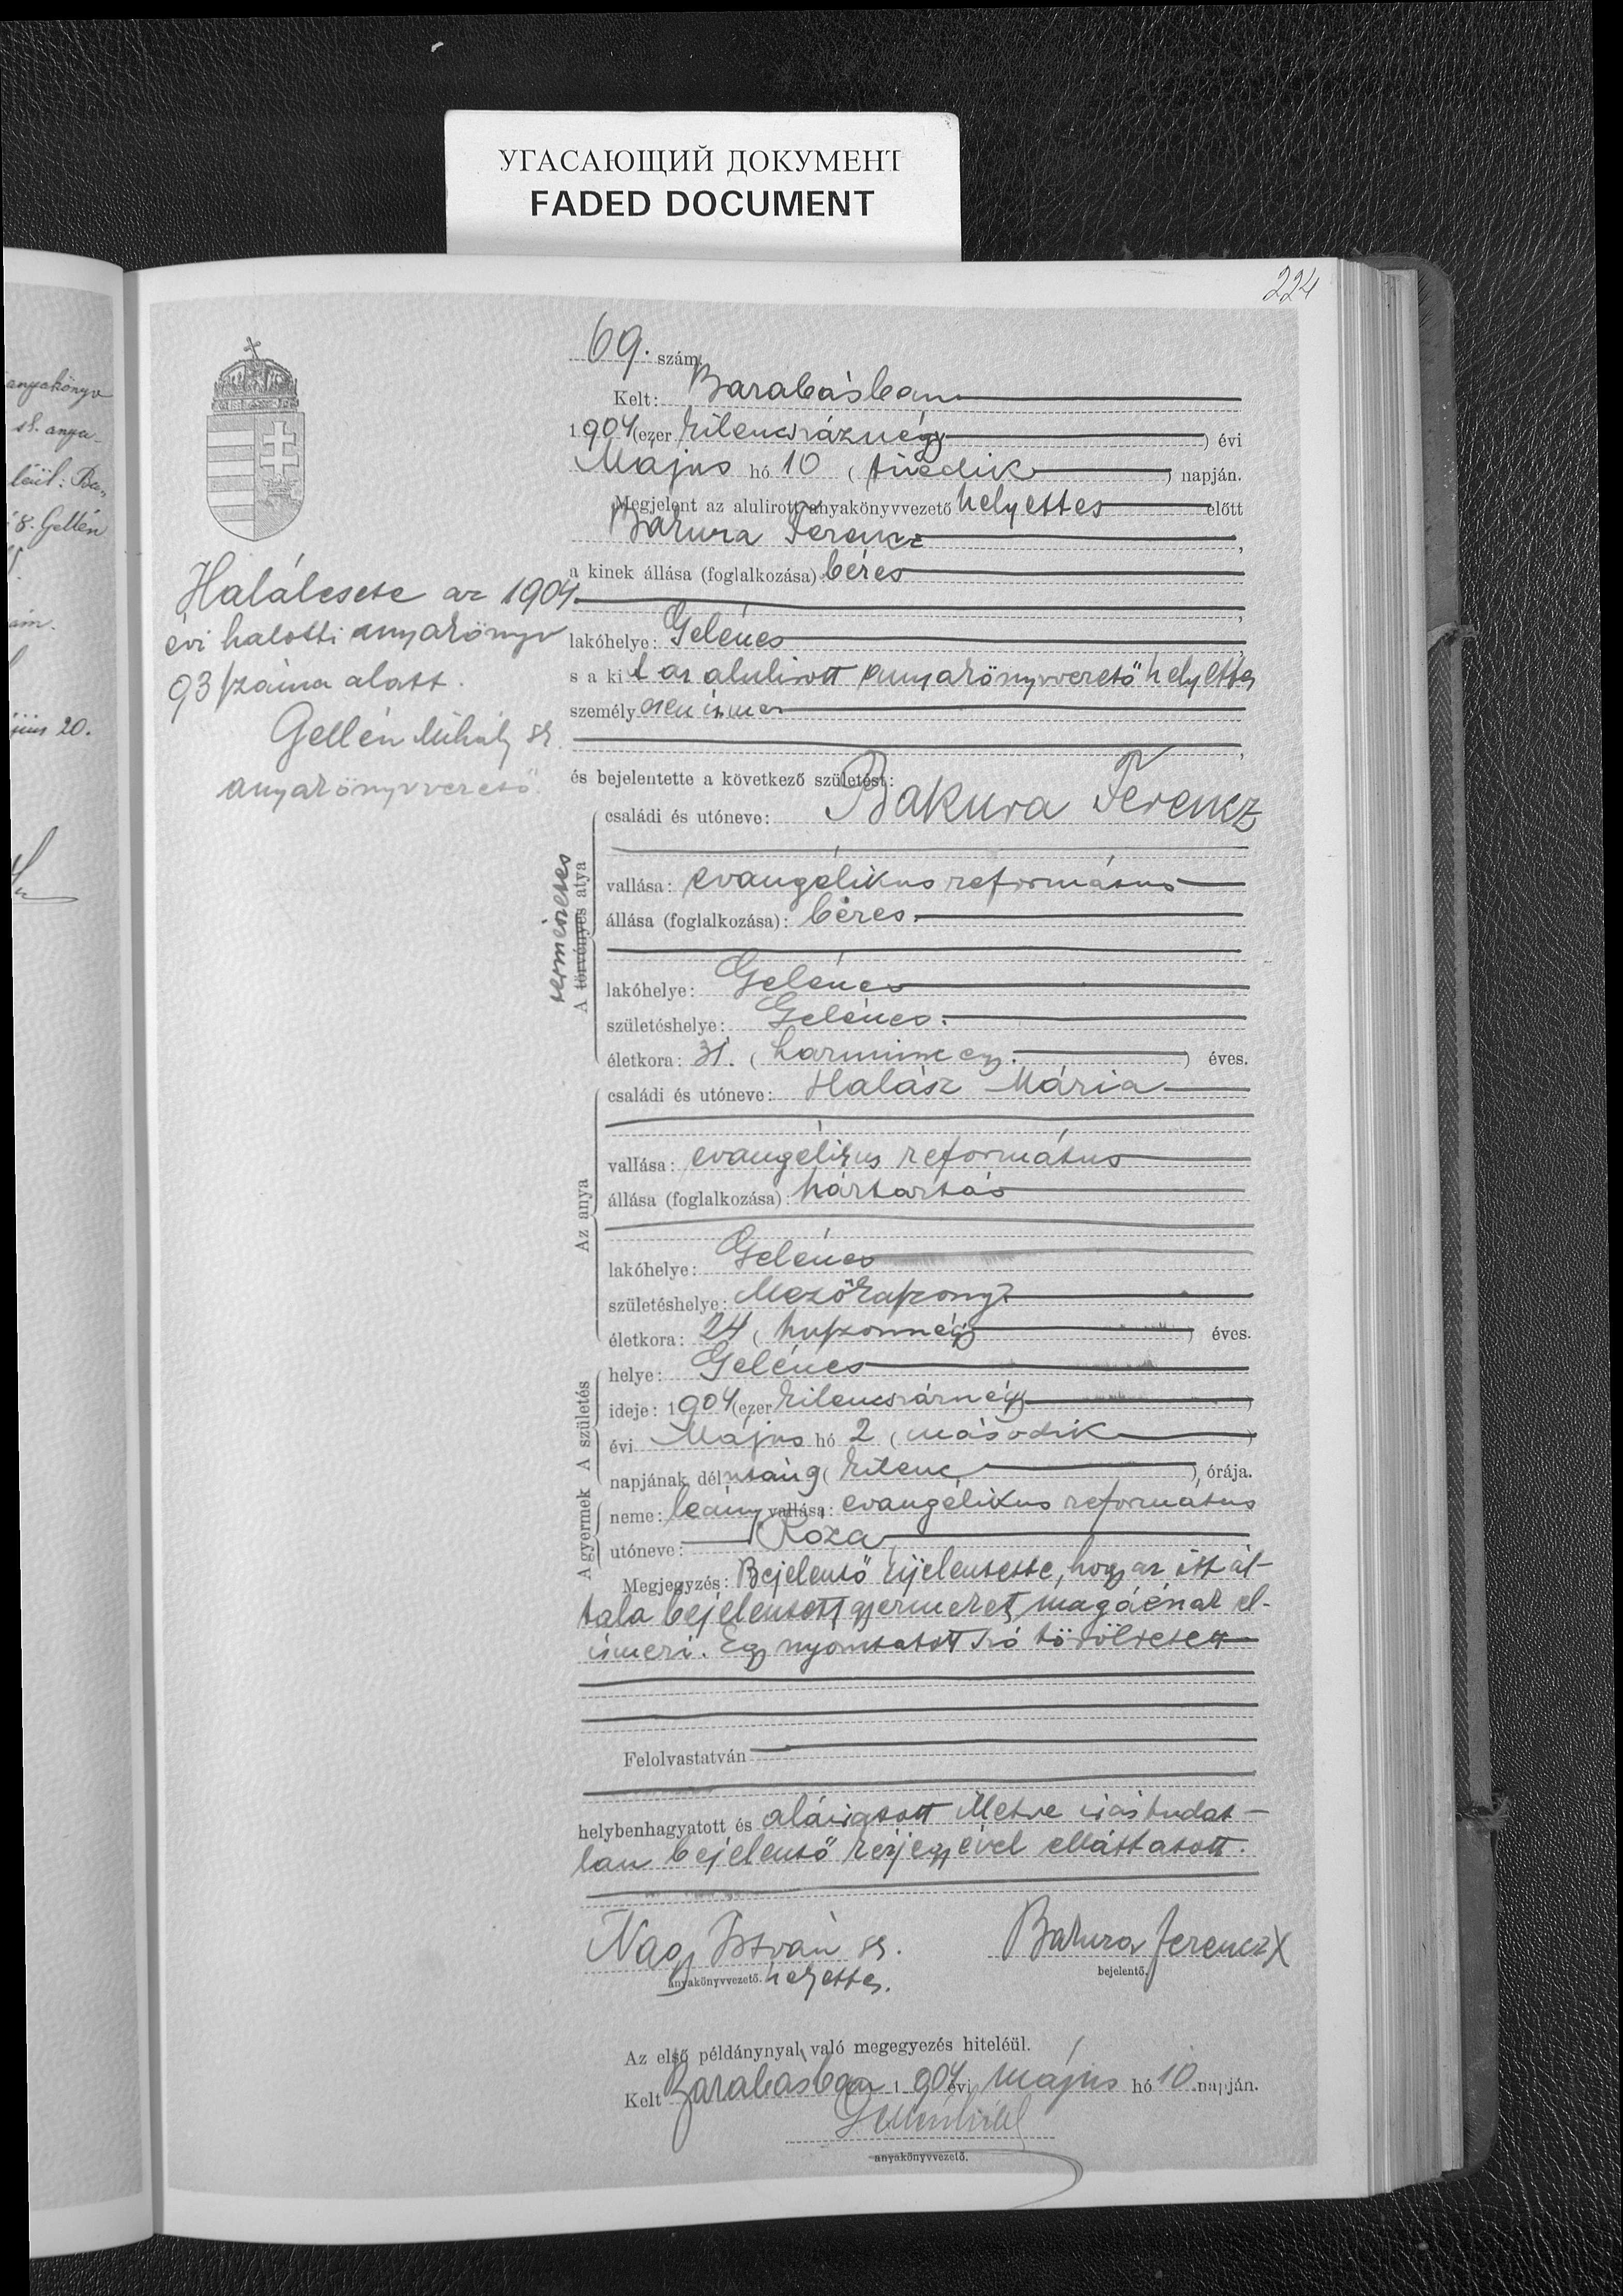 УГАСАЮЩИЙ ДОКУМЕНТ
FADED DOCUMENT
224
anyakönyv
sk. anya-
8. Gellén
20.
69. szám.
Kelt: Barabásban
1904 (ezer kilencszáznégy) évi
Május hó 10 (tizedik) napján.
Megjelent az alulirott anyakönyvvezető helyettes előtt
Bakura Ferencz,
a kinek állása (foglalkozása): béres
lakóhelye: Gelénes
s a kit az alulirott anyakönyvvezető helyettes
személyesen ismer
és bejelentette a következő születést:
Halálesete az 1904.
évi halotti anyakönyv
93 száma alatt.
Gellén Mihály sk.
anyakönyvvezető.
A törvényes atya
természetes
családi és utóneve: Bakura Ferencz
vallása: evangélikus református
állása (foglalkozása): béres.
lakóhelye: Gelénes
születéshelye: Gelénes.
életkora: 31. (harmincegy.) éves.
Az anya
családi és utóneve: Halász Mária
vallása: evangélikus református
állása (foglalkozása): háztartás
lakóhelye: Gelénes
születéshelye: Mezőkaszony
életkora: 24 (huszonnégy) éves.
A születés
helye: Gelénes
ideje: 1904 (ezer kilencszáznégy)
évi Május hó 2 (második)
napjának délutáni 9 (kilenc) órája.
A gyermek
neme: leány vallása: evangélikus református
utóneve: Róza
Megjegyzés: Bejelentő kijelentette, hogy az itt ál-
tala bejelentett gyermeket magáénak el-
ismeri. Egy nyomtatott szó töröltetett
Felolvastatván
helybenhagyatott és aláiratott illetve irástudat-
lan bejelentő kézjegyével elláttatott.
Nagy István sk. Bakura Ferencz X
anyakönyvvezető. helyettes. bejelentő.
Az első példánynyal való megegyezés hiteléül.
Kelt Barabásban 1904 évi május hó 10 napján.
Gellén Mihály
anyakönyvvezető.